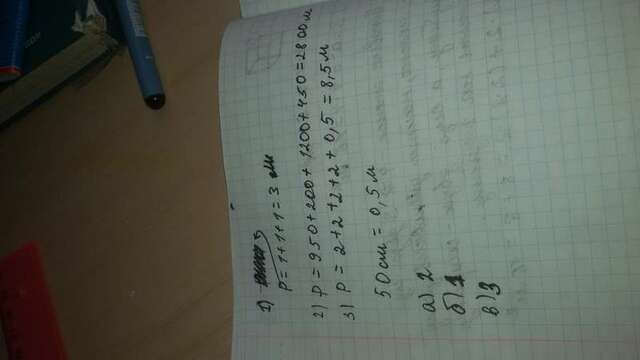 1)
P = 1+1+1 = 3 мм
2) P = 950+200+1200+450=2800м
3) P = 2+2+2+2+0,5 = 8,5м
50см = 0,5м
а) 2
б) 1
в) 3